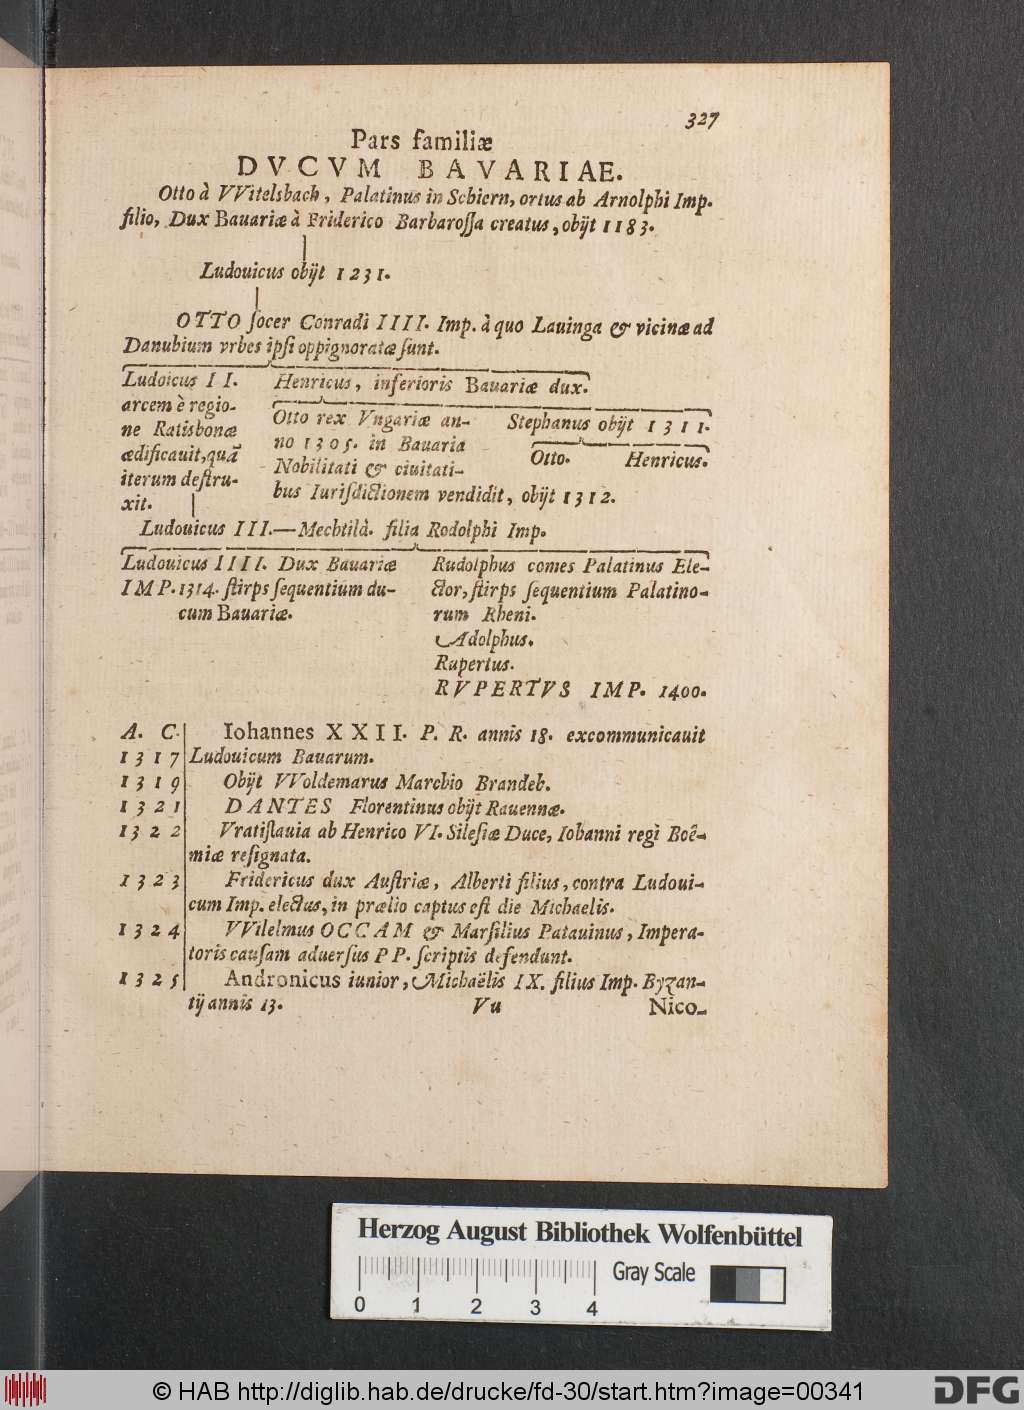 327
Pars familiæ
DVCVM BAVARIAE.
Otto à VVitelsbach, Palatinus in Schiern, ortus ab Arnolphi Imp.
filio, Dux Bauariæ à Friderico Barbarossa creatus, obijt 1183.
Ludouicus obijt 1231.
OTTO socer Conradi IIII. Imp. à quo Lauinga & vicinæ ad
Danubium vrbes ipsi oppignoratæ sunt.
Ludoicus II.
arcem è regio-
ne Ratisbonæ
ædificauit, quã
iterum destru-
xit.
Henricus, inferioris Bauariæ dux.
Otto rex Vngariæ an-
no 1305. in Bauaria
Nobilitati & ciuitati-
bus Iurisdictionem vendidit, obijt 1312.
Stephanus obijt 1311.
Otto. Henricus.
Ludouicus III.—Mechtild. filia Rodolphi Imp.
Ludouicus IIII. Dux Bauariæ
IMP. 1314. stirps sequentium du-
cum Bauariæ.
Rudolphus comes Palatinus Ele-
ctor, stirps sequentium Palatino-
rum Rheni.
Adolphus.
Rupertus.
RVPERTVS IMP. 1400.
A. C. Iohannes XXII. P. R. annis 18. excommunicauit
1317 Ludouicum Bauarum.
1319 Obijt VVoldemarus Marchio Brandeb.
1321 DANTES Florentinus obijt Rauennæ.
1322 Vratislauia ab Henrico VI. Silesiæ Duce, Iohanni regi Boê-
miæ resignata.
1323 Fridericus dux Austriæ, Alberti filius, contra Ludoui-
cum Imp. electus, in prælio captus est die Michaelis.
1324 VVilelmus OCCAM & Marsilius Patauinus, Impera-
toris causam aduersus PP. scriptis defendunt.
1325 Andronicus iunior, Michaëlis IX. filius Imp. Byzan-
tij annis 13.
Vu Nico-
Herzog August Bibliothek Wolfenbüttel
Gray Scale
0 1 2 3 4
© HAB http://diglib.hab.de/drucke/fd-30/start.htm?image=00341
DFG